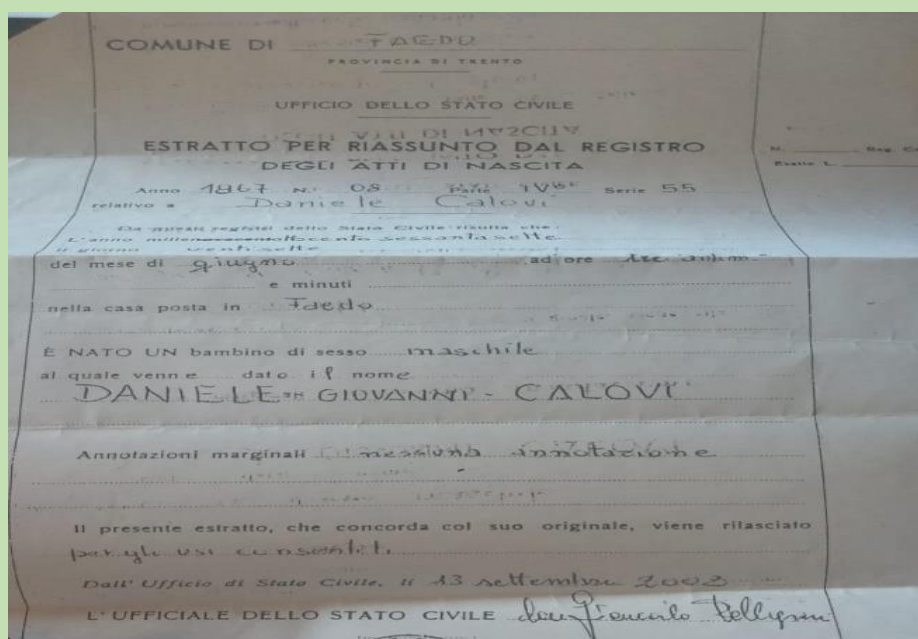 COMUNE DI FAEDO
PROVINCIA DI TRENTO
UFFICIO DELLO STATO CIVILE
ESTRATTO PER RIASSUNTO DAL REGISTRO
DEGLI ATTI DI NASCITA
Anno 1867 N. 08 Parte Serie 55
relativo a Daniele Calovi
Da questi registri dello Stato Civile risulta che:
L'anno ottocento sessantasette
il giorno ventisette
del mese di giugno ad ore tre
e minuti
nella casa posta in Faedo
È NATO UN bambino di sesso maschile
al quale venne dato il nome
DANIELE GIOVANNI - CALOVI
Annotazioni marginali nessuna annotazione
Il presente estratto, che concorda col suo originale, viene rilasciato
per gli usi consentiti.
Dall'Ufficio di Stato Civile, li 13 settembre 2002
L'UFFICIALE DELLO STATO CIVILE
N. Reg.